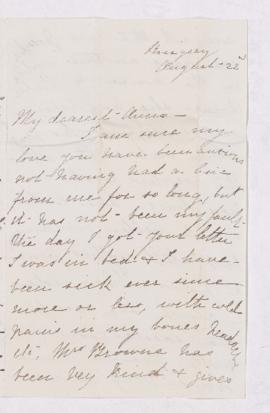 August 22nd
My dearest Anna -
I am sure my
love you have been anxious
not having had a line
from me for so long, but
it has not been my fault.
The day I got your letter
I was in bed & I have
been sick ever since
more or less, with cold
pains in my bones head ache
etc, Mrs Browne has
been very kind & gives